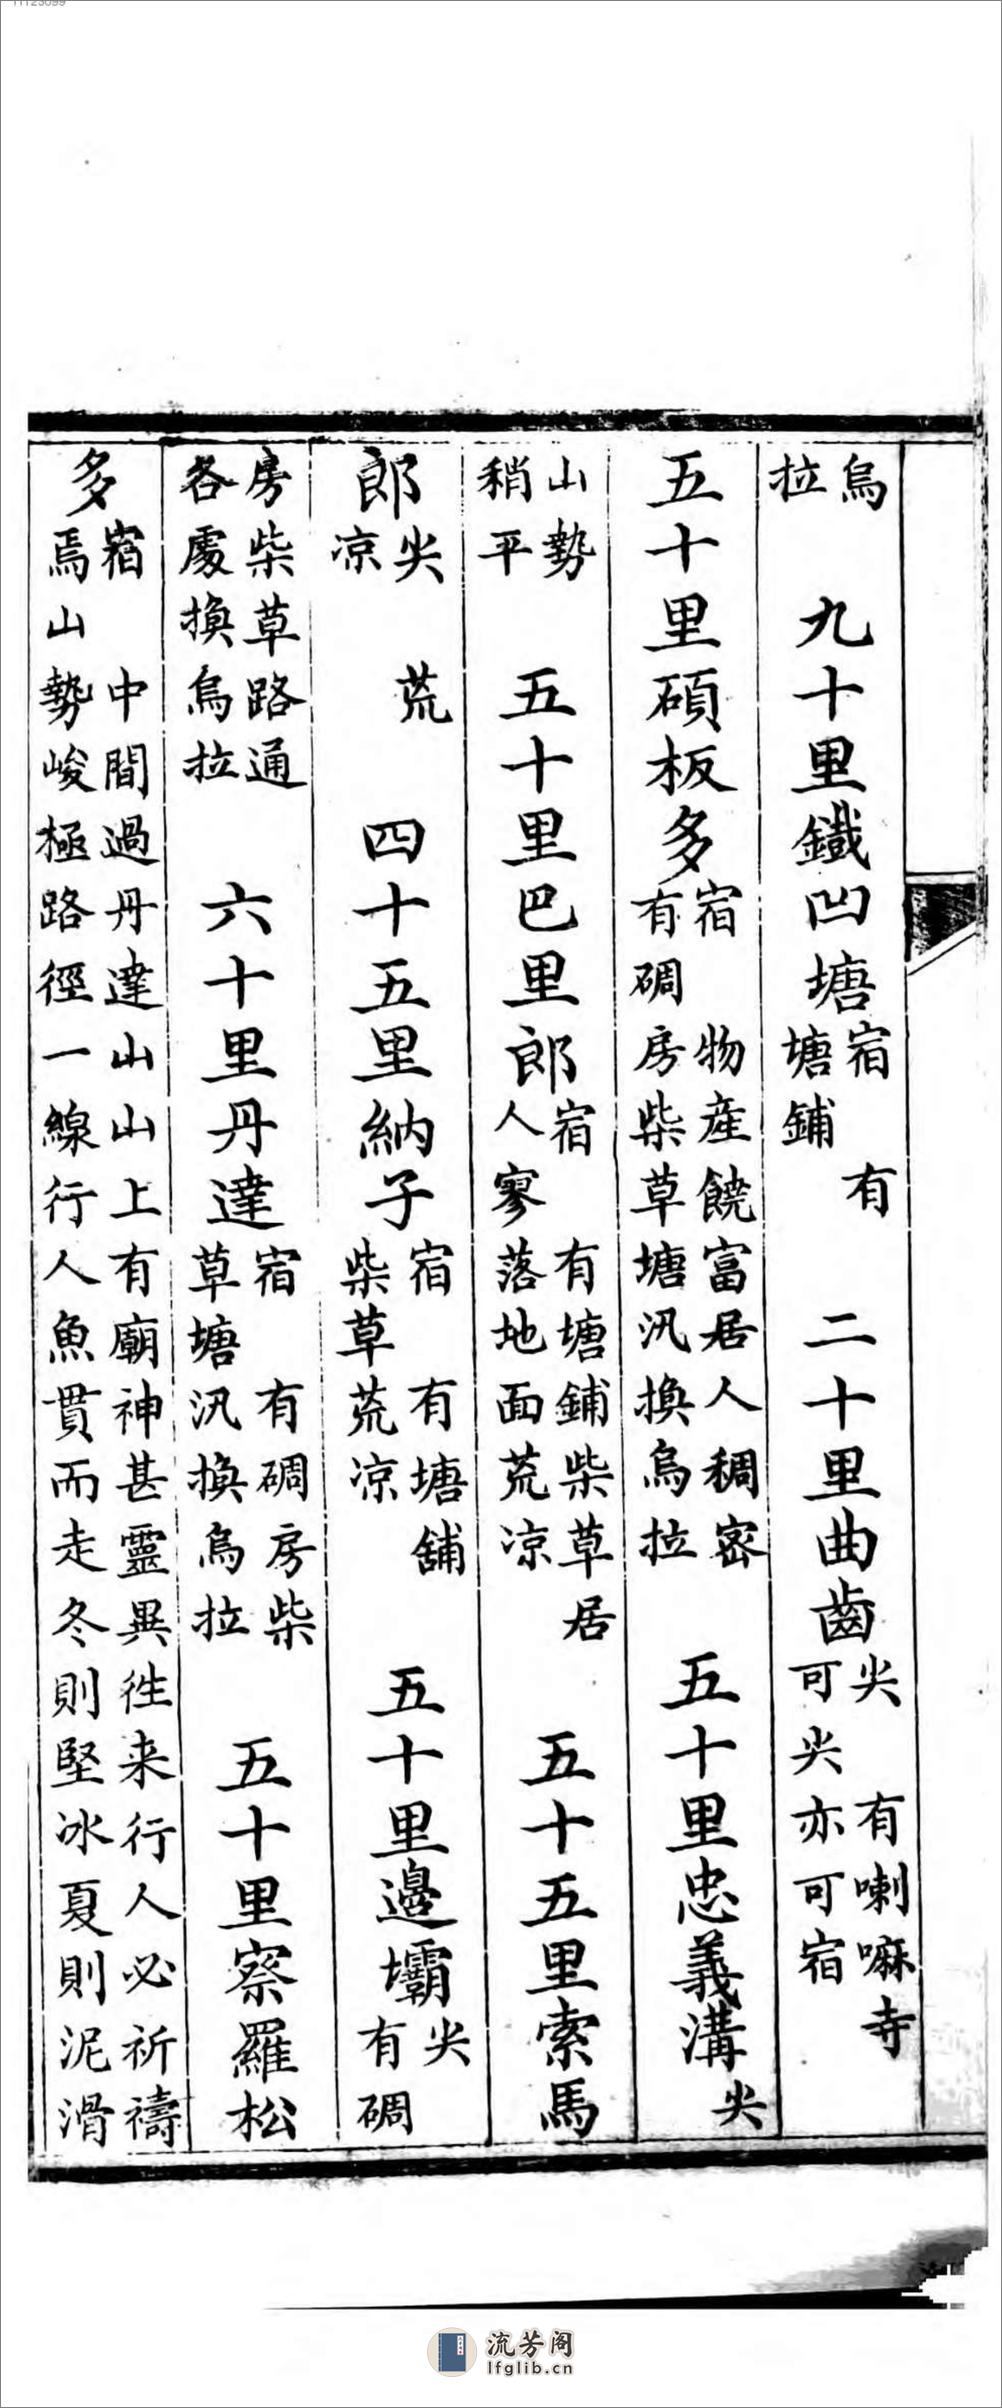 烏拉 九十里鐵凹塘宿 有塘鋪 二十里曲齒尖 有喇嘛寺可尖亦可宿
五十里碩板多宿 物產饒富居人稠密有碉房柴草塘汛換烏拉 五十里忠義溝尖
山勢稍平 五十里巴里郎宿 有塘鋪柴草居人寥落地面荒凉 五十五里索馬
郎尖 荒凉 四十五里納子宿 有塘舖柴草荒凉 五十里邊壩尖 有碉
房柴草路通各處換烏拉 六十里丹達宿 有碉房柴草塘汛換烏拉 五十里察羅松
多宿 中間過丹達山山上有廟神甚靈異徃来行人必祈禱焉山勢峻極路徑一線行人魚貫而走冬則堅冰夏則泥滑
流芳阁
lfglib.cn